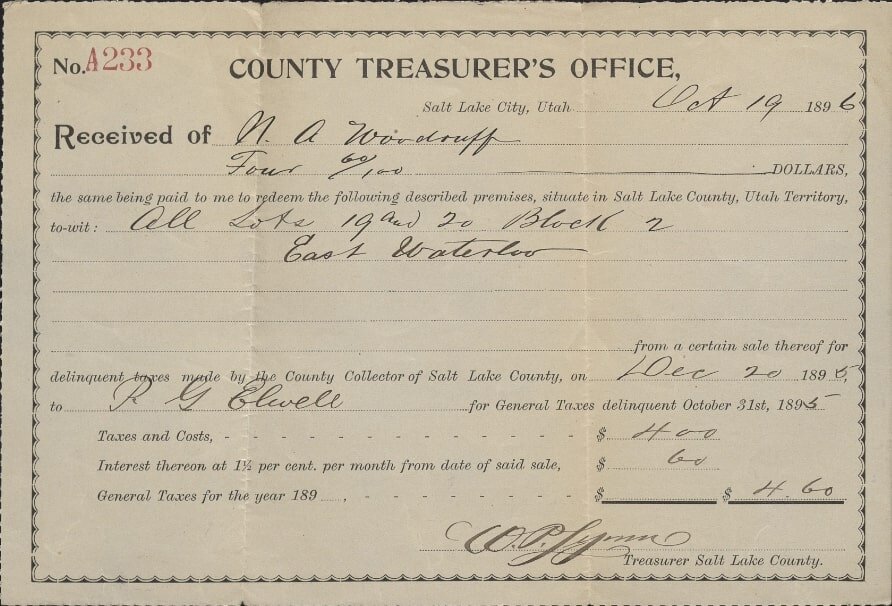 No. A233
COUNTY TREASURER'S OFFICE,
Salt Lake City, Utah Oct 19 1896
Received of N. A Woodruff
Four 60/100 DOLLARS,
the same being paid to me to redeem the following described premises, situate in Salt Lake County, Utah Territory,
to-wit: All Lots 19 and 20 Block 2
East Waterloo
from a certain sale thereof for
delinquent taxes made by the County Collector of Salt Lake County, on Dec 20 1895,
to R G Elwell for General Taxes delinquent October 31st, 1895
Taxes and Costs, - - - - - - - - - - - - - - $ 4 00
Interest thereon at 1½ per cent. per month from date of said sale, $ 60
General Taxes for the year 189 , - - - - - - - - - $ $ 4.60
W. P. Lynn
Treasurer Salt Lake County.